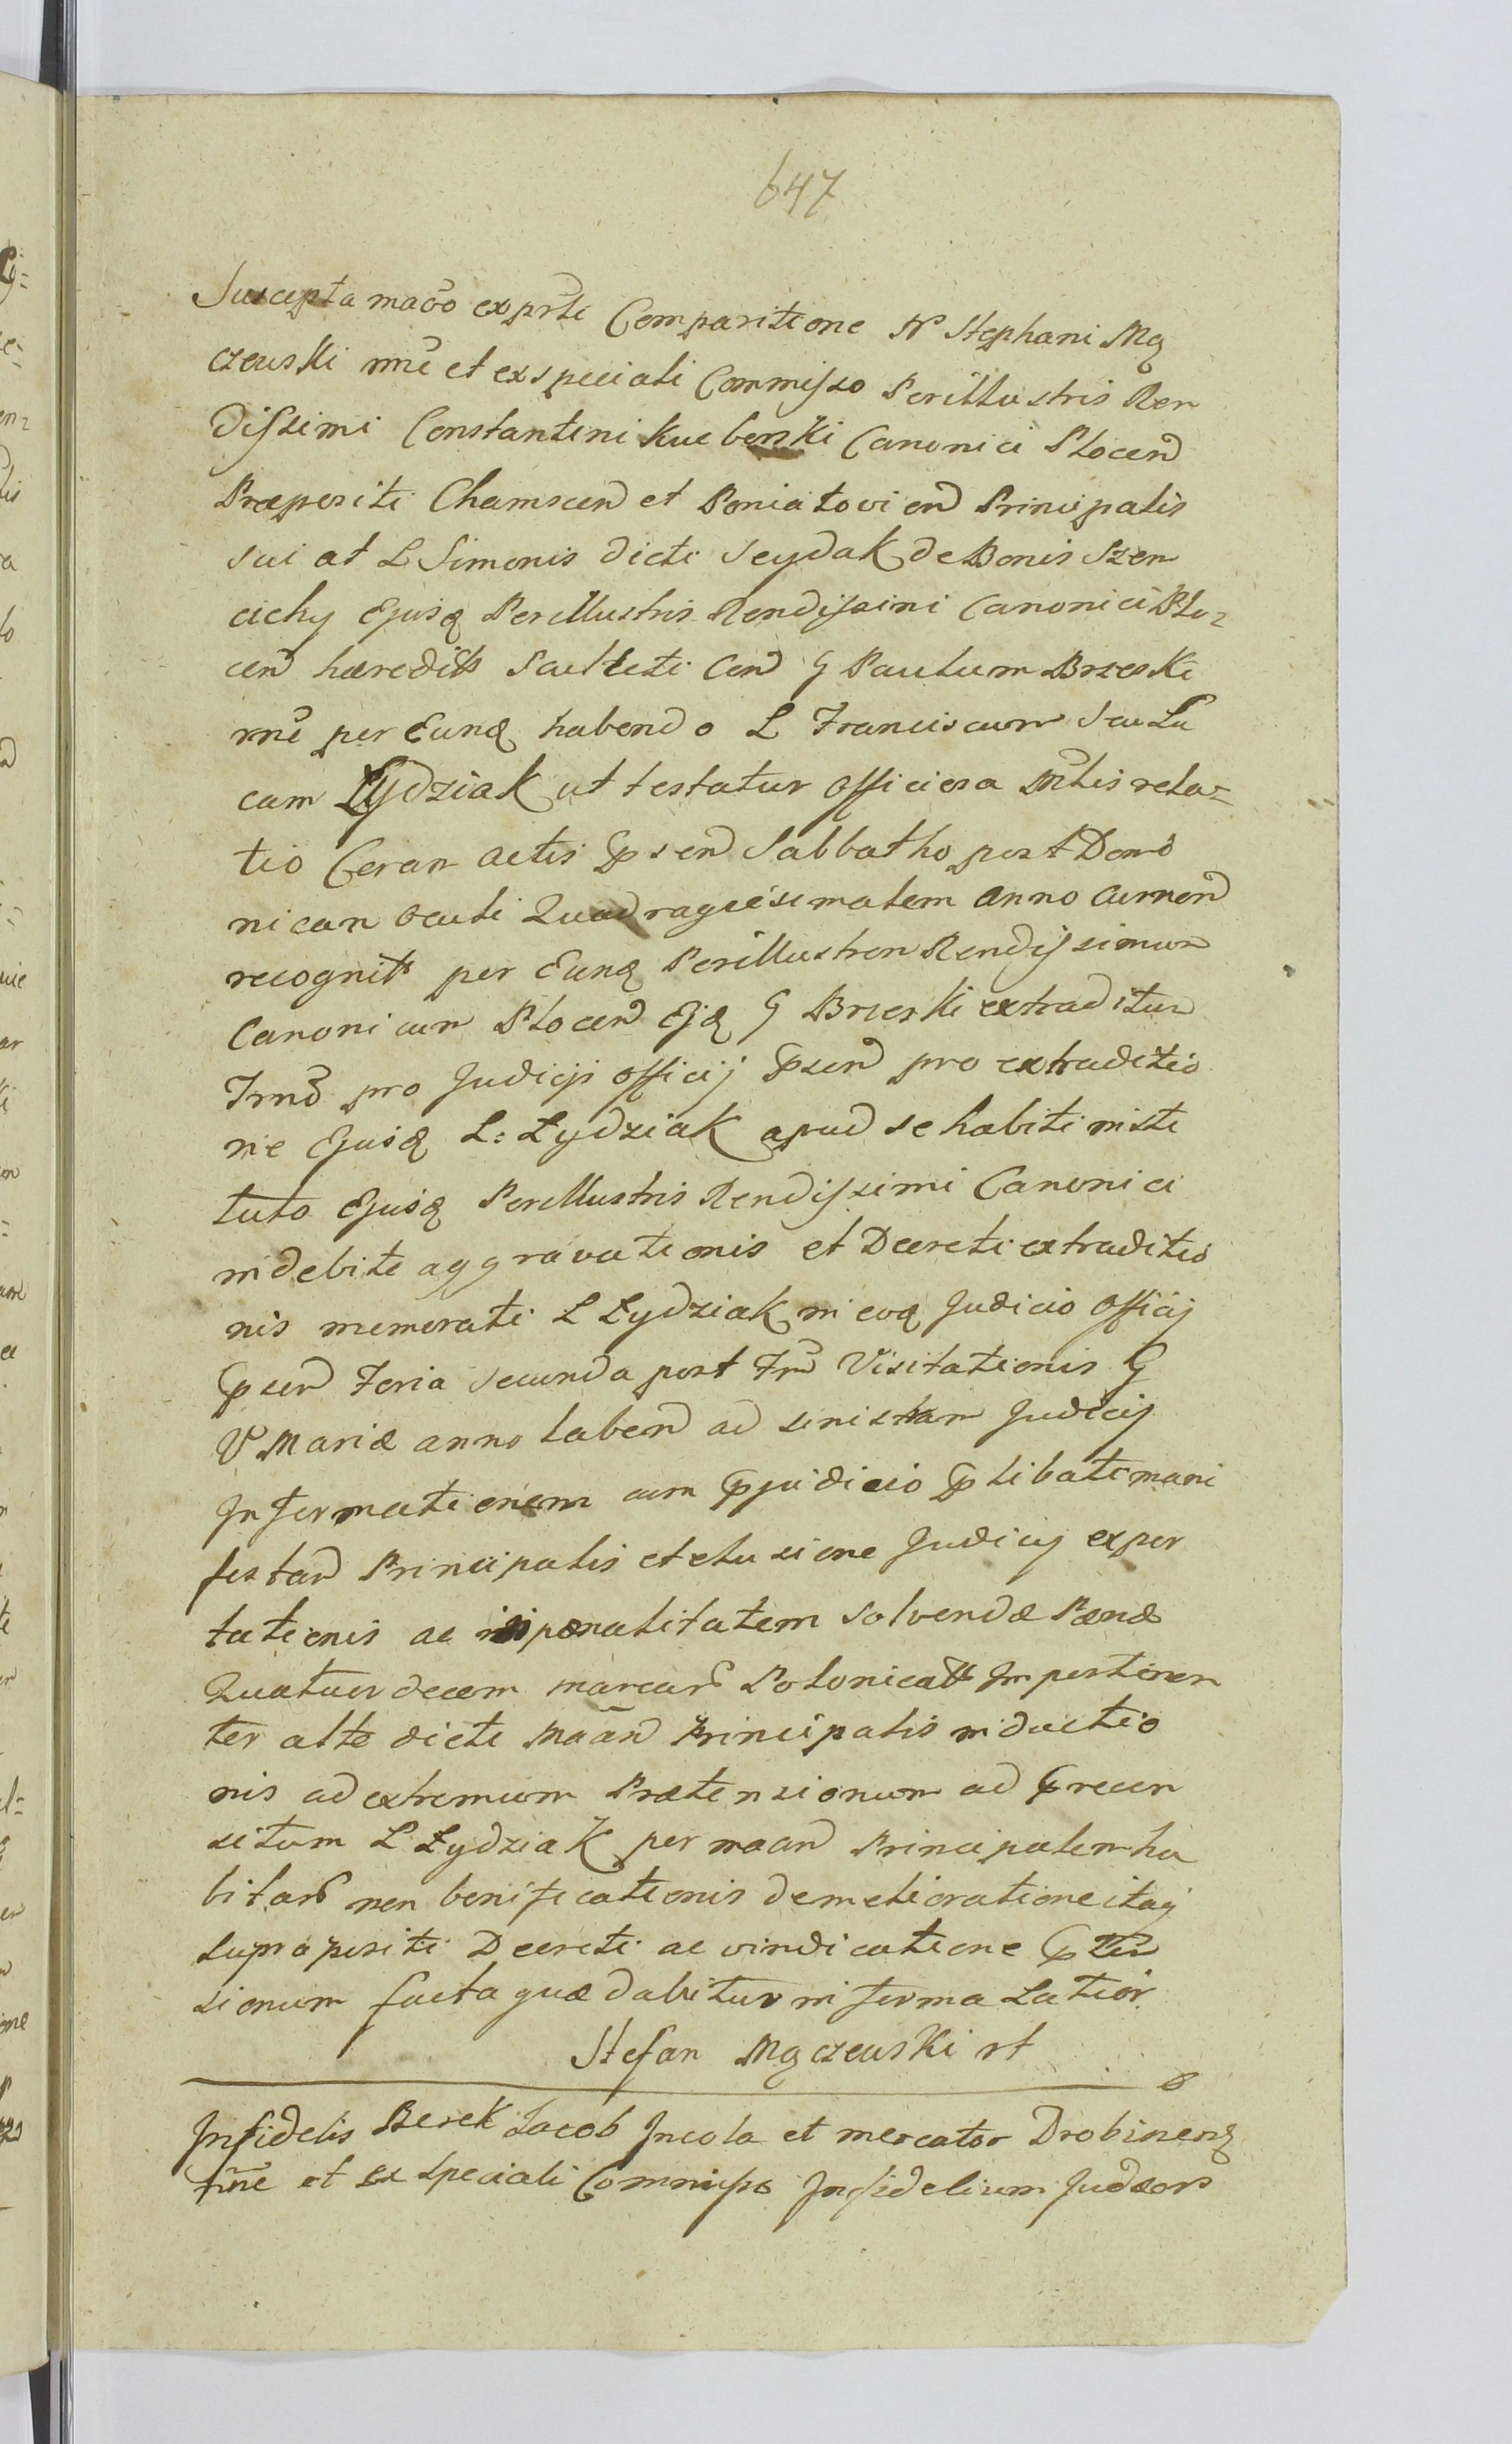 647
Suscepta maõo ex prte Comparitione N Stephani Mą
czewski nnẽ et ex speciali Commisso Perillustris Ren
dissimi Constantini Kucborski Canonici Plocen
Præpositi Chamscen et Poniatovien Principalis
sui at L Simonis dicti Seydak de Bonis Szen
cichy Ejusq Perillustris Rendissimi Canonici Plo=
cen hæredits Sculteti Con G Paulum Brzeski
nnẽ per Eunq habendo L Franciscum seu Lu
cam Łydziak ut testatur Officiosa Mtlis rela=
tio Coram actis pñsen Sabbatho post Domi
nicam Oculi Quadragesimalem Anno Currnen
recognits per Eunq Perillustrem Rendissimum
Canonicum Plocen Ejq G Brzeski extraditum
Trmõ pro Judicijs Officij pñsen pro extraditio
ne Ejusq L: Łydziak apud se habiti insti
tuto Ejusq Perillustris Rendissimi Canonici
indebite aggravationis et Decreti extraditio
nis memorati L Łydziak in eoq Judicio Officij
pñsen Feria secunda post Fm Visitationis G
V Mariæ anno laben ad sinistram Judicij
Informationem cum pjudicio plibati mani
festan Principalis et elusione Judicij expor
tationis ac in pœnalitatem solvendæ Pænæ
Quatuordecem marcar Polonicals Impertinen
ter alte dicti Maan Principalis inductio
nis ad extremum Prætensionum ad precen
situm L Łydziak per maan Principalem ha
bitar non benificationis demelioratione itaq
supra positi Decreti ac vindicatione pten
sionum facta quæ dabitur in forma Latiori
Stefan Mączewski rt
Infidelis Berek Jacob Incola et mercator Drobinenq
nnẽ et ex speciali Commisso Infidelium Judæor